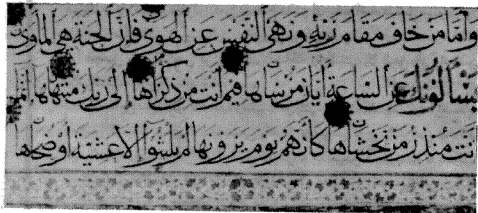 وأما من خاف مقام ربه ونهى النفس عن الهوى فإن الجنة هي المأوى
يسألونك عن الساعة أيان مرساها فيم أنت من ذكراها إلى ربك منتهاها إنما
أنت منذر من يخشاها كأنهم يوم يرونها لم يلبثوا إلا عشية أو ضحاها